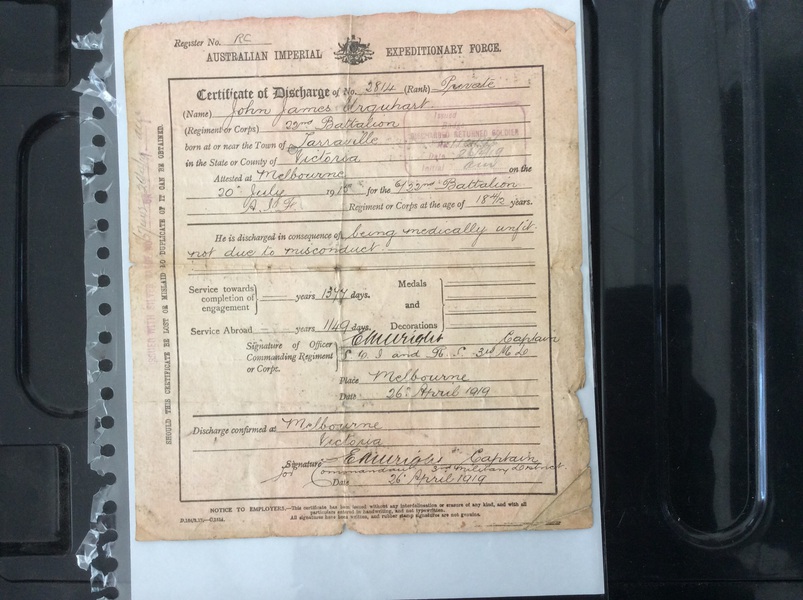 Register No. RC
AUSTRALIAN IMPERIAL EXPEDITIONARY FORCE.
Certificate of Discharge of No. 2814 (Rank) Private
(Name) John James Urquhart
(Regiment or Corps) 22nd Battalion
born at or near the Town of Tarraville
in the State or County of Victoria
Attested at Melbourne on the
20th July 1915 for the 6/22nd Battalion
A.I.F. Regiment or Corps at the age of 18 4/12 years.
Issued
DISCHARGED RETURNED SOLDIER
He is discharged in consequence of being medically unfit
not due to misconduct
Service towards completion of engagement — years 1377 days.
Service Abroad — years 1149 days.
Medals
and
Decorations
Signature of Officer Commanding Regiment or Corps. Captain
S.O. I and R.S. 3rd M.D.
Place Melbourne
Date 26th April 1919
Discharge confirmed at Melbourne
Victoria
Signature Captain
for Commandant 3rd Military District
Date 26th April 1919
NOTICE TO EMPLOYERS.—This certificate has been issued without any interlineation or erasure of any kind, and with all
particulars entered in handwriting, and not typewritten.
All signatures have been written, and rubber stamp signatures are not genuine.
SHOULD THIS CERTIFICATE BE LOST OR MISLAID NO DUPLICATE OF IT CAN BE OBTAINED.